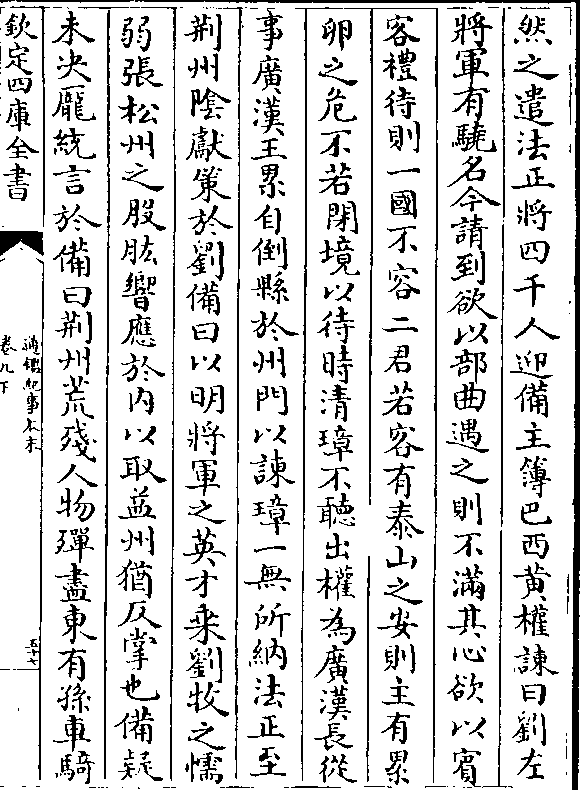 然之遣法正將四千人迎備主簿巴西黄權諫曰劉左
將軍有驍名今請到欲以部曲遇之則不滿其心欲以賔
客禮待則一國不容二君若客有泰山之安則主有累
卵之危不若閉境以待時清璋不聽出權為廣漢長從
事廣漢王累自倒縣於州門以諫璋一無所納法正至
荆州陰獻策於劉備曰以明將軍之英才乗劉牧之懦
弱張松州之股肱響應於内以取益州猶反掌也備疑
未决龎統言於備曰荆州荒殘人物殫盡東有孫車騎
欽定四庫全書
通鑑紀事本末
卷九下
五十七